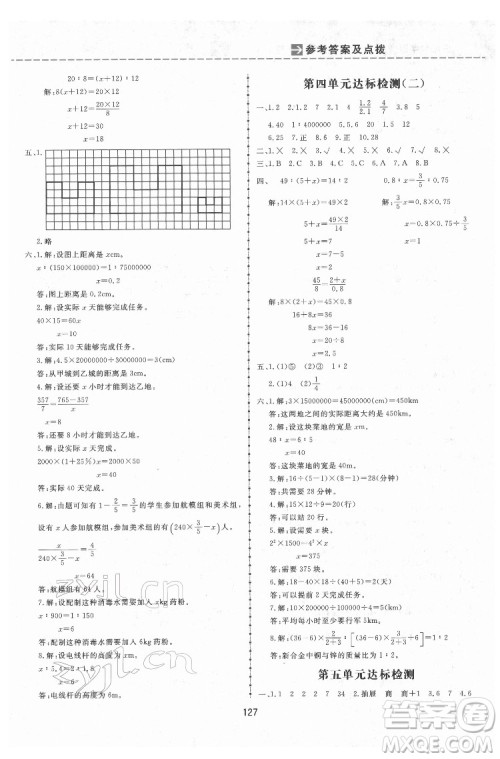 参考答案及点拨
20∶8=(x+12)∶8
解:8(x+12)=20×8
x+12=20×8/8
x+12=30
x=18
五、1.
2.略
六、1.解:设图上距离是xcm。
x∶(150×100000)=1∶75000000
x=0.2
答:图上距离是0.2cm。
2.解:设实际x天能够完成任务。
40×15=60x
x=10
答:实际10天能够完成任务。
3.解:4.5×20000000÷30000000=3(cm)
答:从甲城到乙城的图上距离是3cm。
4.解:设还要x小时才能到达乙地。
357/7=765-357/x
x=8
答:还要8小时才能到达乙地。
5.解:设实际x天完成。
2000×(1+25%)x=2000×50
x=40
答:实际40天完成。
6.解:由题意可知有1-2/5=3/5的学生参加航模组和美术组,
设有x人参加航模组,则美术组有(240×3/5-x)人。
x/(240×3/5-x)=4/5
x=64
答:航模组有64人。
7.解:设配制这种消毒水需要加入xkg药粉。
x∶900=1∶150
x=6
答:配制这种消毒水需要加入6kg药粉。
8.解:设电线杆的高度是xm。
x=6
答:电线杆的高度为6m。
第四单元达标检测(二)
一、1.12 2.1.2 7 1.2/2.1 4/7 3.8 5
4.40 1∶4000000 5.5.6
6.25 7.正 8.正 9.正 10.28
二、1.× 2.× 3.√ 4.× 5.×
三、1.B 2.C 3.B 4.A 5.C
四、49∶(5+x)=14∶2 0.8∶x=3/5∶0.75
解:14×(5+x)=49×2 解:3/5x=0.8×0.75
5+x=49×2/14 x=0.8×0.75÷3/5
5+x=7 x=1
x=7-5
x=2
45/8=2+x/0.8
解:8×(2+x)=45×0.8
16+8x=36
8x=36-16
x=2.5
五、1.(1)⑤ (2)③
2.(1)4 (2)1/4
六、1.解:3×15000000=45000000(cm)=450km
答:这两地之间的实际距离是450km。
2.解:设这块菜地的宽是xm。
48∶x=6∶5
x=40
答:这块菜地的宽是40m。
3.解:8×14÷4=28(分钟)
答:共需要28分钟。
4.解:15×12÷9=20(行)
答:可以站20行。
5.解:设需要x块。
2²×1500=4²×x
x=375
答:需要375块。
答:平均每小时至少要行军9km。
答:新合金中铜与锌的质量比是
第五单元达标检测
一、1.1 2 2 7 34 2.抽屉 商 商+1 3.6 7 4.6
127